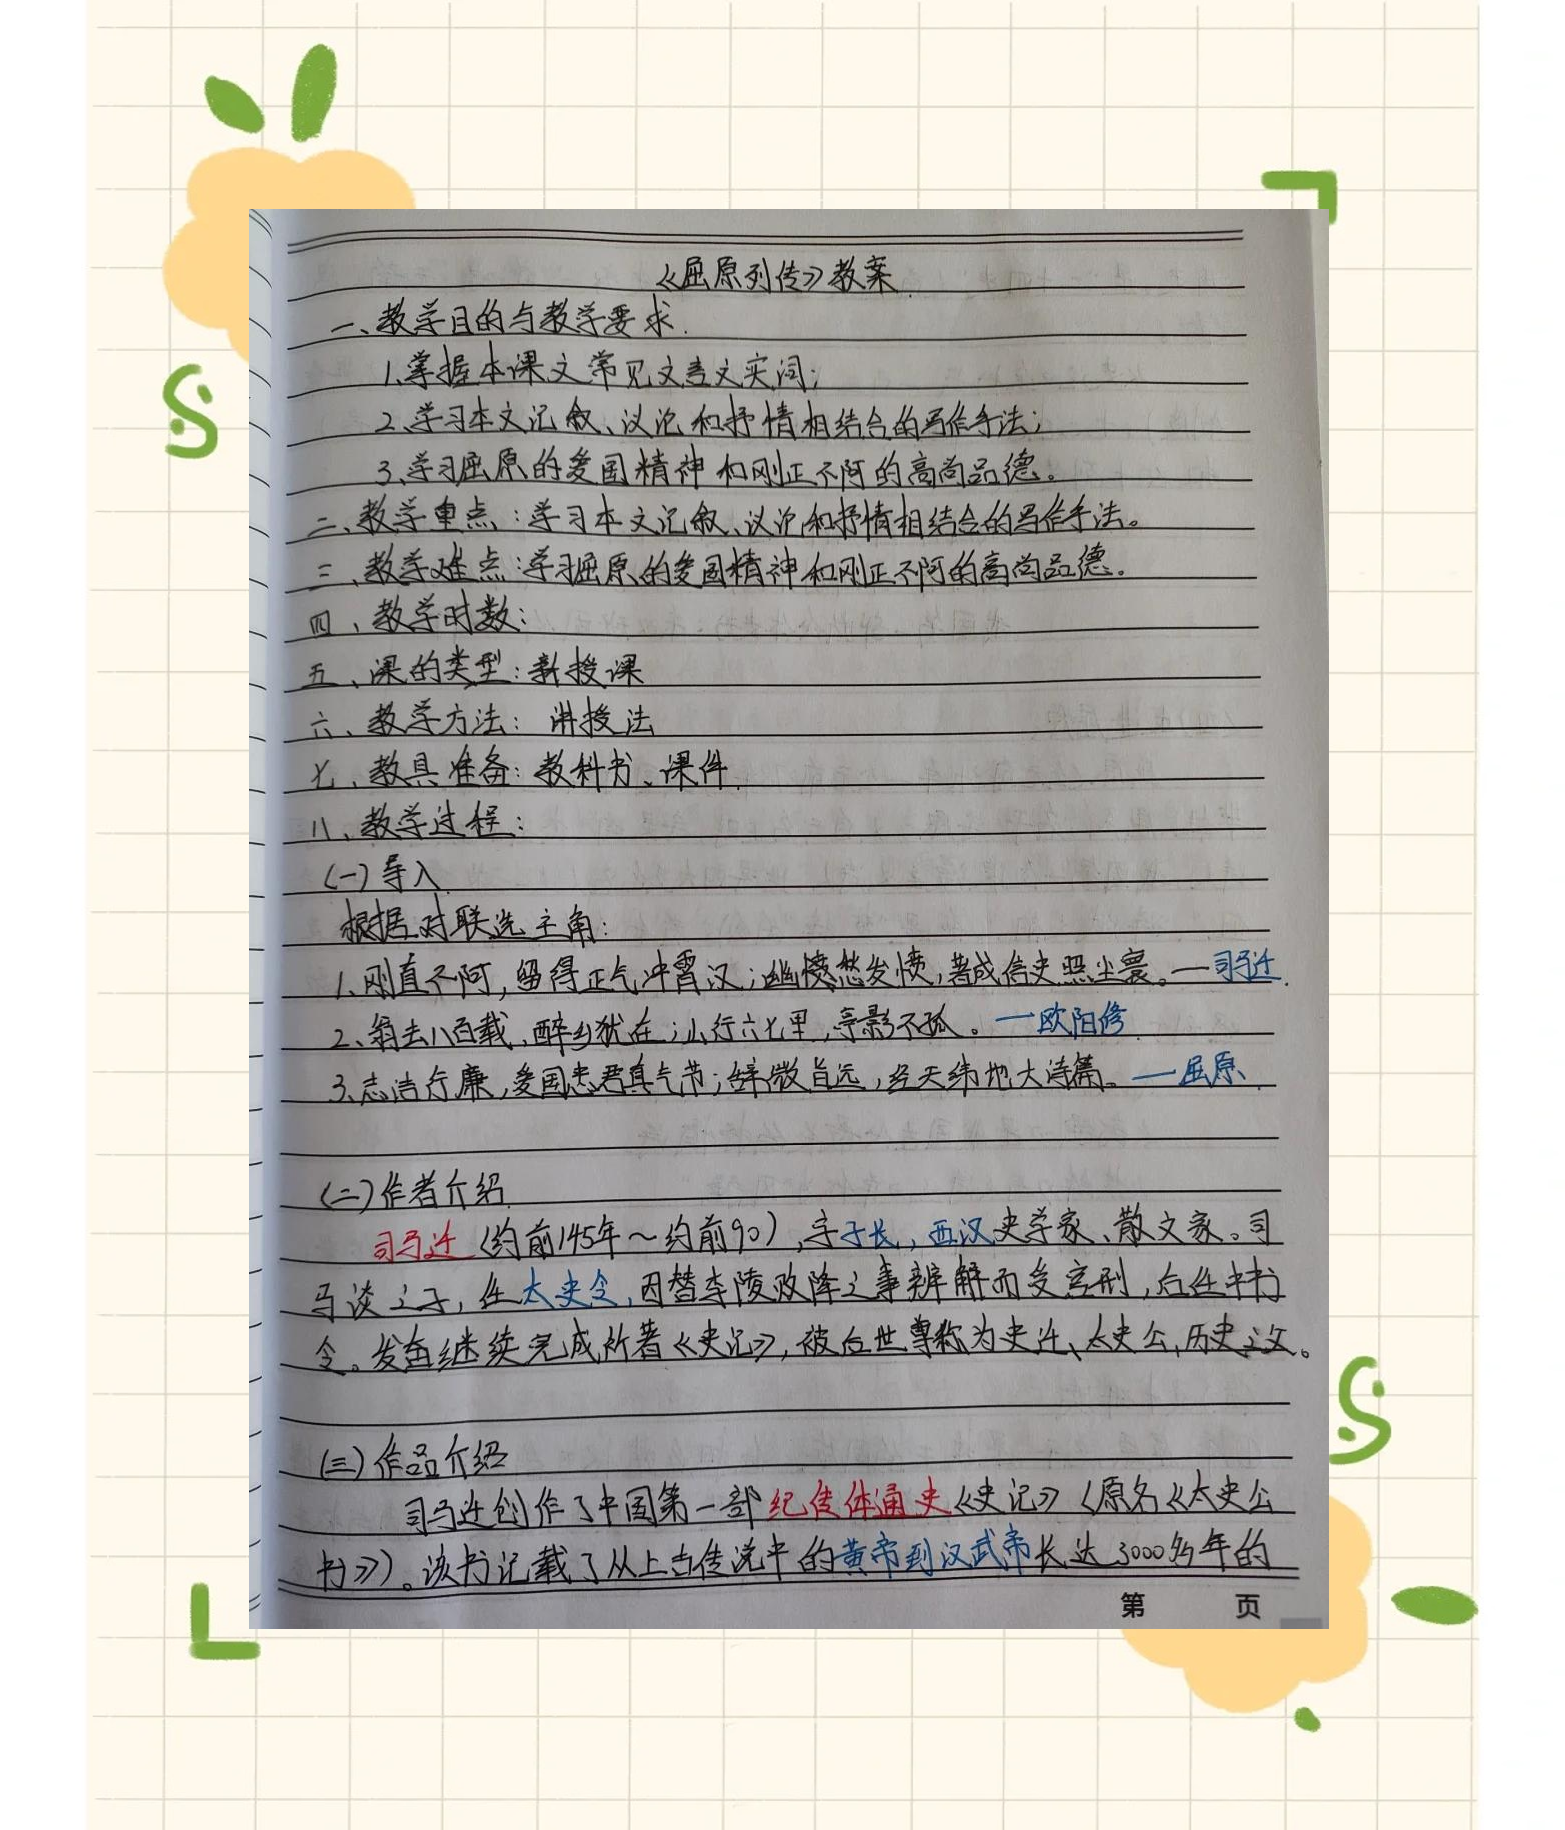 《屈原列传》教案.
一、教学目的与教学要求.
1.掌握本课文常见文言文实词;
2.学习本文记叙、议论和抒情相结合的写作手法;
3.学习屈原的爱国精神和刚正不阿的高尚品德。
二、教学重点:学习本文记叙、议论和抒情相结合的写作手法。
三、教学难点:学习屈原的爱国精神和刚正不阿的高尚品德。
四、教学时数:
五、课的类型:新授课
六、教学方法: 讲授法
七、教具准备:教科书、课件.
八、教学过程:
(一)导入.
根据对联选主角:
1.刚直不阿,留得正气冲霄汉;幽愁发愤,著成信史照尘寰。—司马迁.
2、翁去八百载,醉乡犹在;山行六七里,亭影不孤。—欧阳修.
3.志洁行廉,爱国忠君真气节;辞微旨远,经天纬地大诗篇。—屈原.
(二)作者介绍.
司马迁(约前145年~约前90),字子长,西汉史学家、散文家。司
马谈之子,任太史令,因替李陵败降之事辨解而受宫刑,后任中书
令。发奋继续完成所著《史记》,被后世尊称为史迁、太史公,历史之父。
(三)作品介绍
司马迁创作了中国第一部纪传体通史《史记》(原名《太史公
书》)。该书记载了从上古传说中的黄帝到汉武帝长达3000多年的
第 页